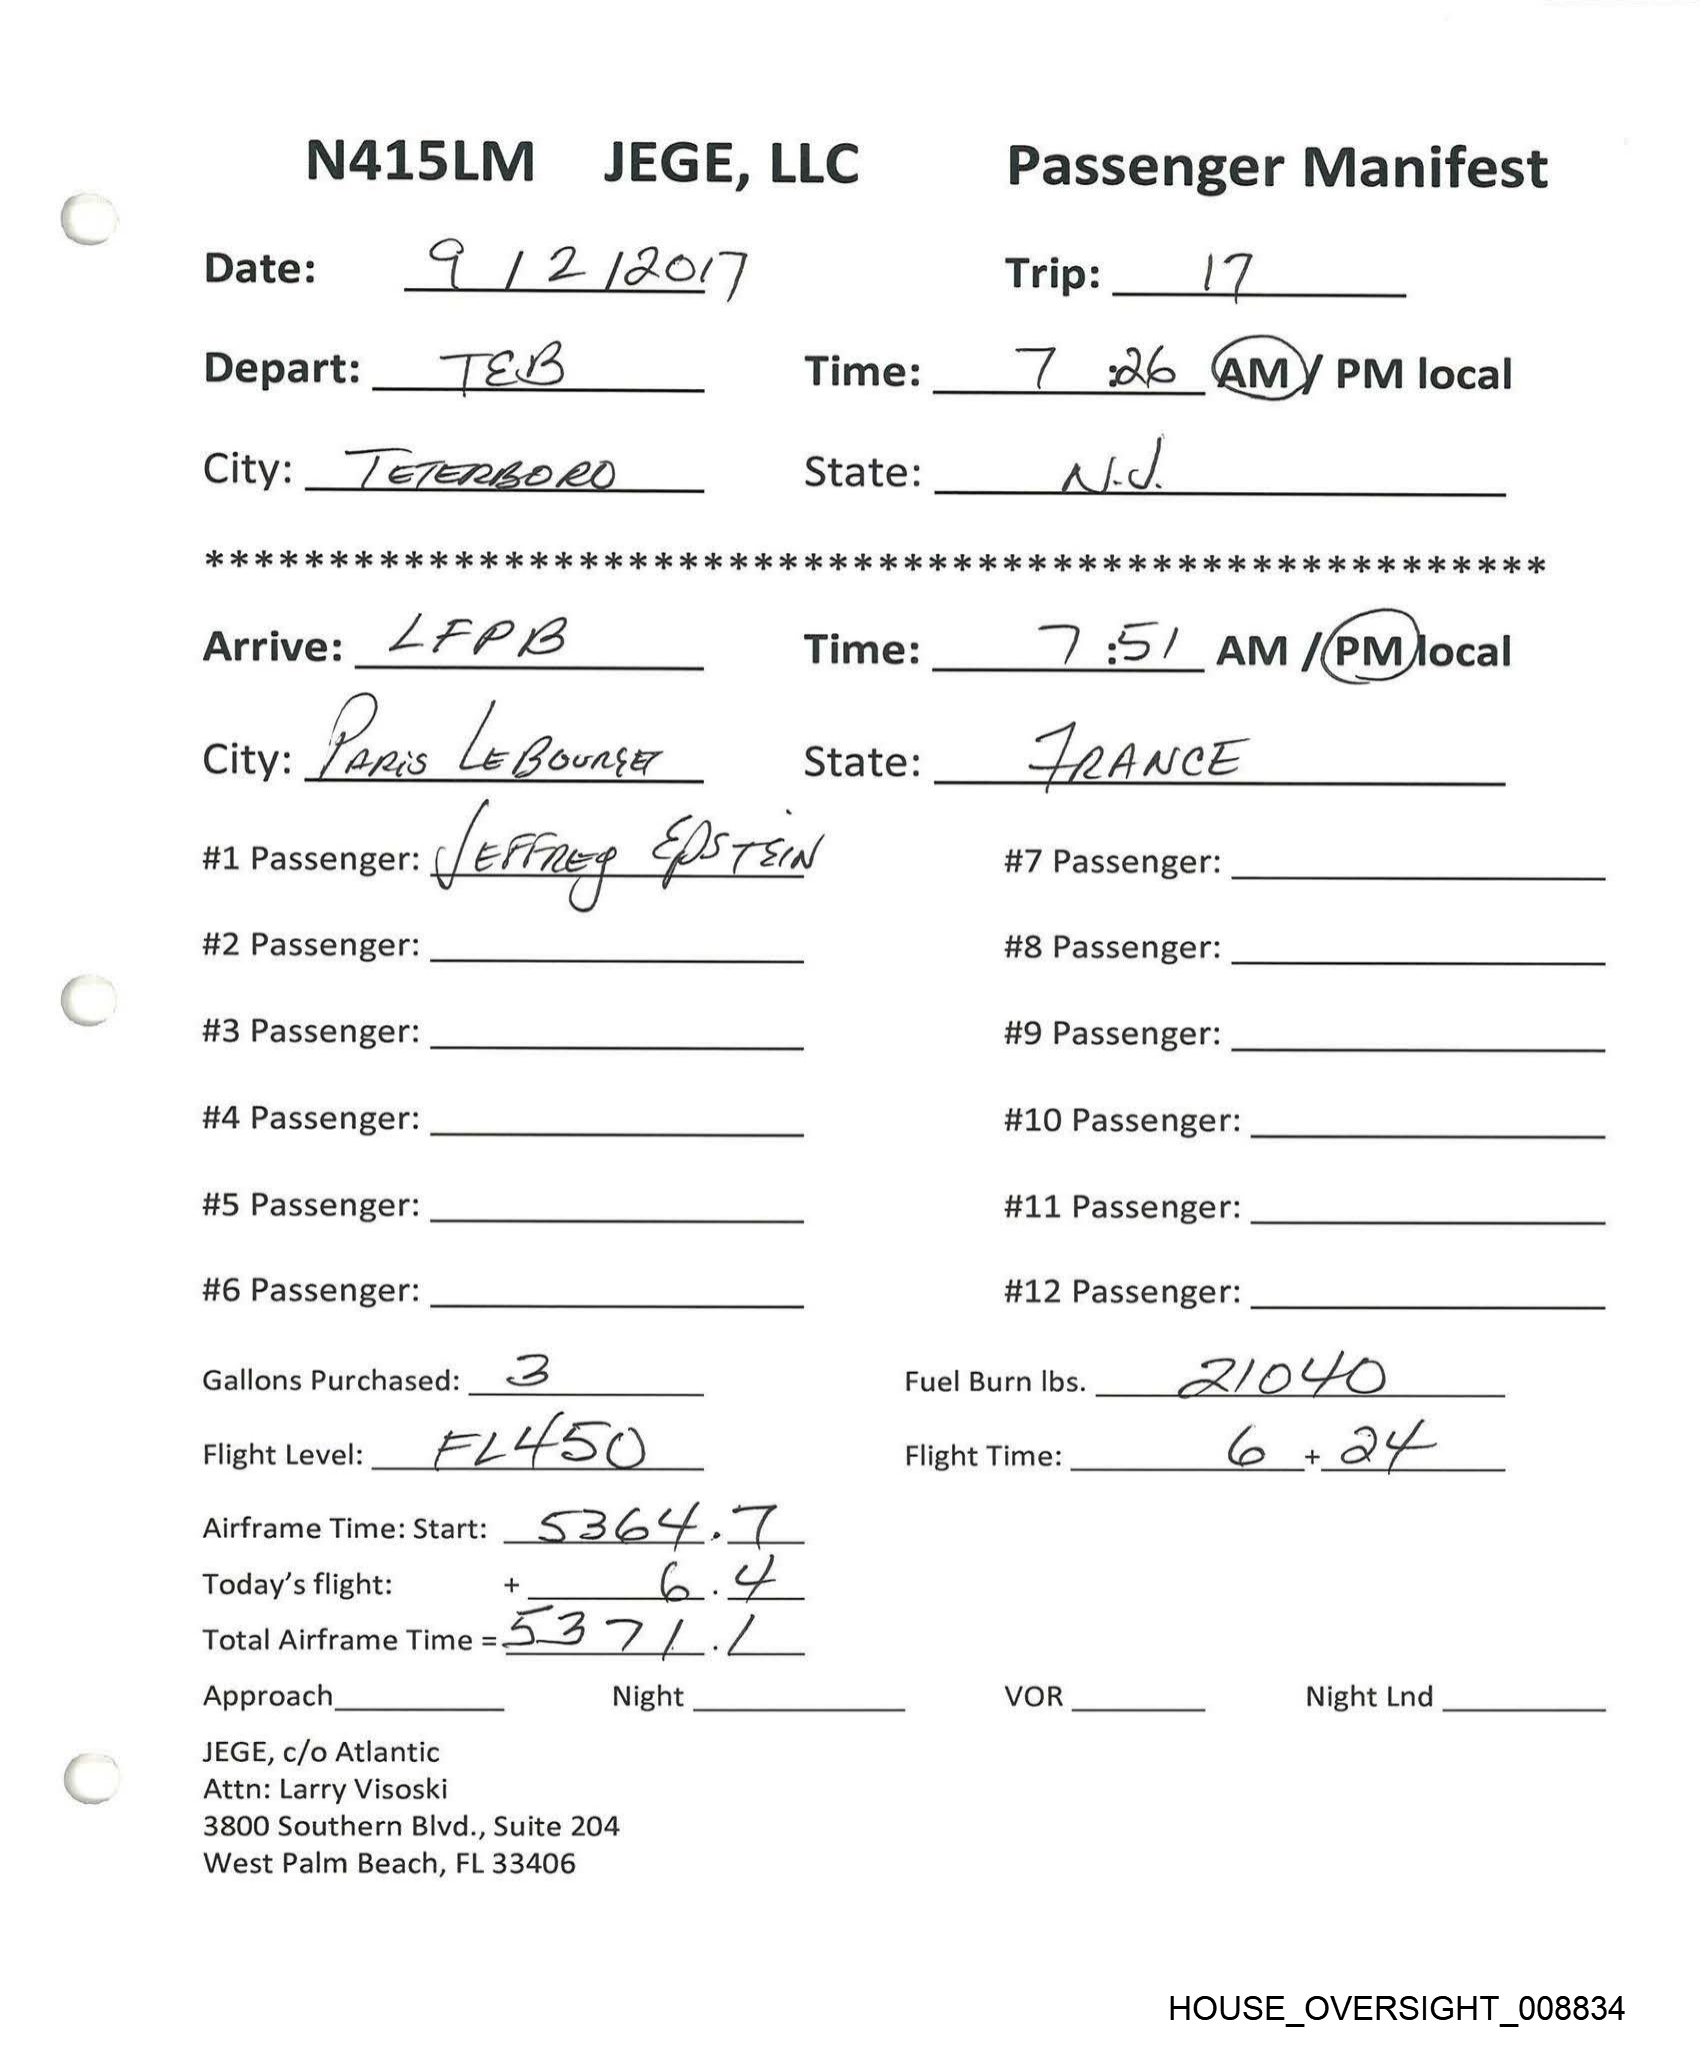 N415LM JEGE, LLC Passenger Manifest
Date: 9/2/2017 Trip: 17
Depart: TEB Time: 7:26 AM / PM local
City: TETERBORO State: N.J.
******************************************************
Arrive: LFPB Time: 7:51 AM / PM local
City: PARIS LEBOURGET State: FRANCE
#1 Passenger: JEFFREY EPSTEIN #7 Passenger:
#2 Passenger: #8 Passenger:
#3 Passenger: #9 Passenger:
#4 Passenger: #10 Passenger:
#5 Passenger: #11 Passenger:
#6 Passenger: #12 Passenger:
Gallons Purchased: 3 Fuel Burn lbs. 21040
Flight Level: FL450 Flight Time: 6 + 24
Airframe Time: Start: 5364.7
Today's flight: + 6.4
Total Airframe Time = 5371.1
Approach Night VOR Night Lnd
JEGE, c/o Atlantic
Attn: Larry Visoski
3800 Southern Blvd., Suite 204
West Palm Beach, FL 33406
HOUSE_OVERSIGHT_008834